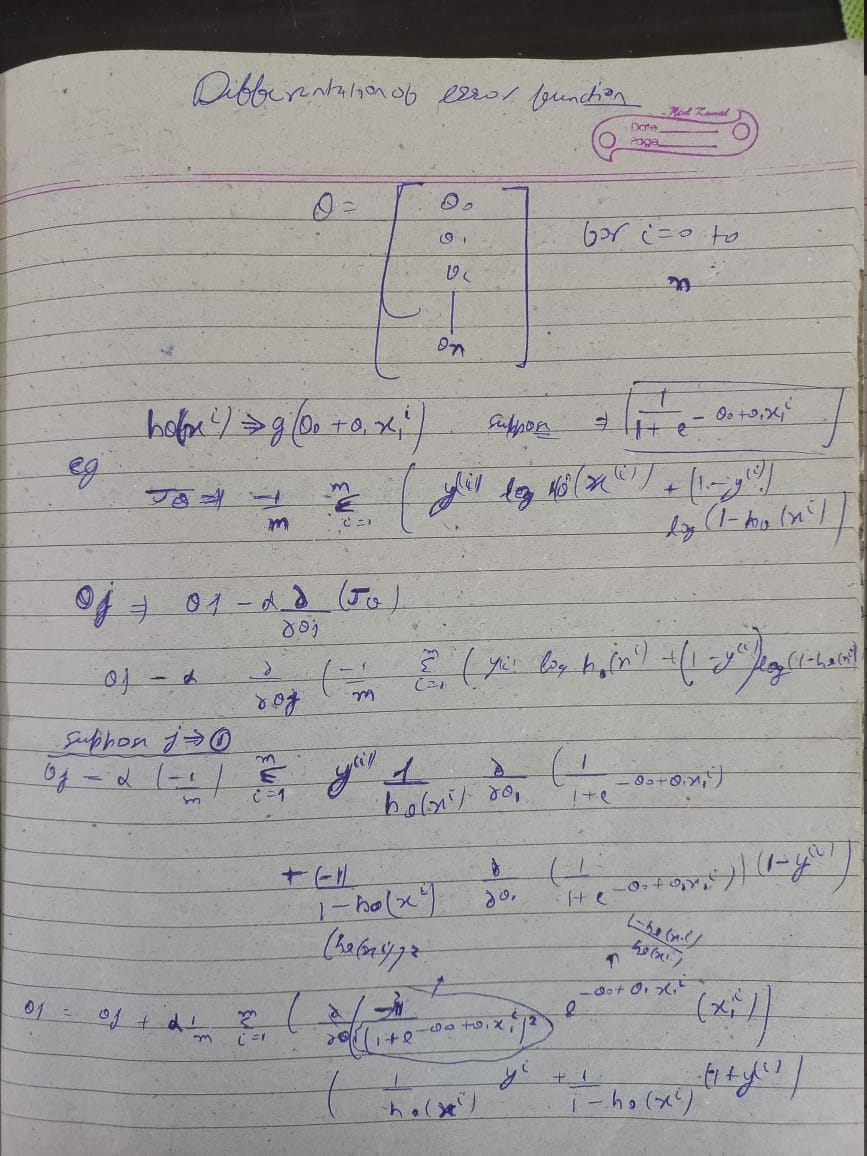 Differentation of error function
Mid Kamal
Date
Page
θ = [ θ₀
θ₁
θ₂
|
θn ]
for i=0 to
n
hθ(xⁱ) ⇒ g(θ₀ + θ₁x₁ⁱ) suppose ⇒ [ 1 / 1 + e^-θ₀+θ₁x₁ⁱ ]
eg
Jθ ⇒ -1/m Σ_{i=1}^{m} ( y⁽ⁱ⁾ log hθ(x⁽ⁱ⁾) + (1-y⁽ⁱ⁾)
log (1-hθ(xⁱ)]
θj ⇒ θj - α ∂/∂θj (Jθ)
θj - α ∂/∂θj ( -1/m Σ_{i=1}^{m} ( y⁽ⁱ⁾ log hθ(xⁱ) + (1-y⁽ⁱ⁾) log(1-hθ(xⁱ)
suppose j ⇒ ①
θj - α (-1/m) Σ_{i=1}^{m} y⁽ⁱ⁾ 1/hθ(xⁱ) ∂/∂θ₁ ( 1 / 1+e^-θ₀+θ₁x₁ⁱ )
+ (-1) / 1-hθ(xⁱ) ∂/∂θ₁ ( 1 / 1+e^-θ₀+θ₁x₁ⁱ )) (1-y⁽ⁱ⁾)
(hθ(xⁱ))² 1-hθ(xⁱ) / hθ(xⁱ)
θj = θj + α 1/m Σ_{i=1}^{m} ( / (1+e^-θ₀+θ₁x₁ⁱ)² e^-θ₀+θ₁x₁ⁱ (x₁ⁱ))
( 1/hθ(xⁱ) yⁱ + 1/1-hθ(xⁱ) (1+y⁽ⁱ⁾)